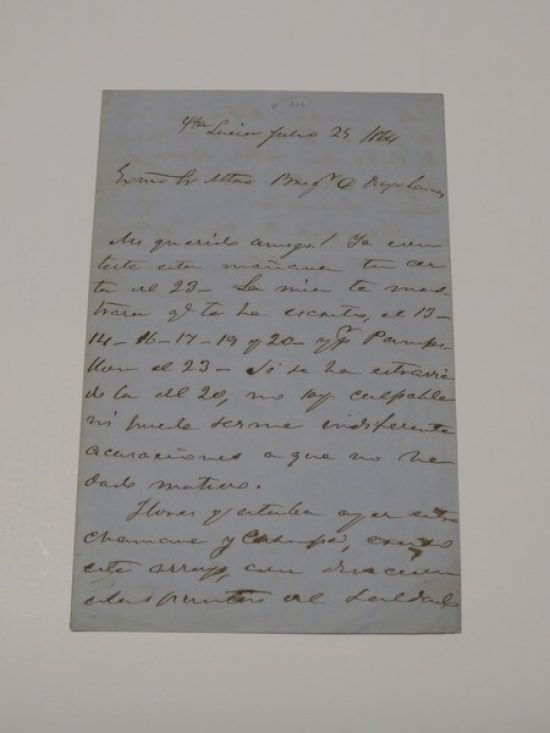 Sta Lucia Julio 25 1864
Exmo Sr Mtro Brigr D
Mi querido amigo! Ya
testé esta mañana tu car
ta del 23 – La mia te mos
trara qe te he escrito, el 13 –
14 – 16 – 17 – 19 y 20 – y pr Pampi
llon el 23 – Si se ha estravia
do la del 20, no soy culpable
ni puede serme indiferente
acusaciones a que no he
dado motivo.
Flores estaba ayer entre
Chamame y
este arroyo, con
estas puntas del